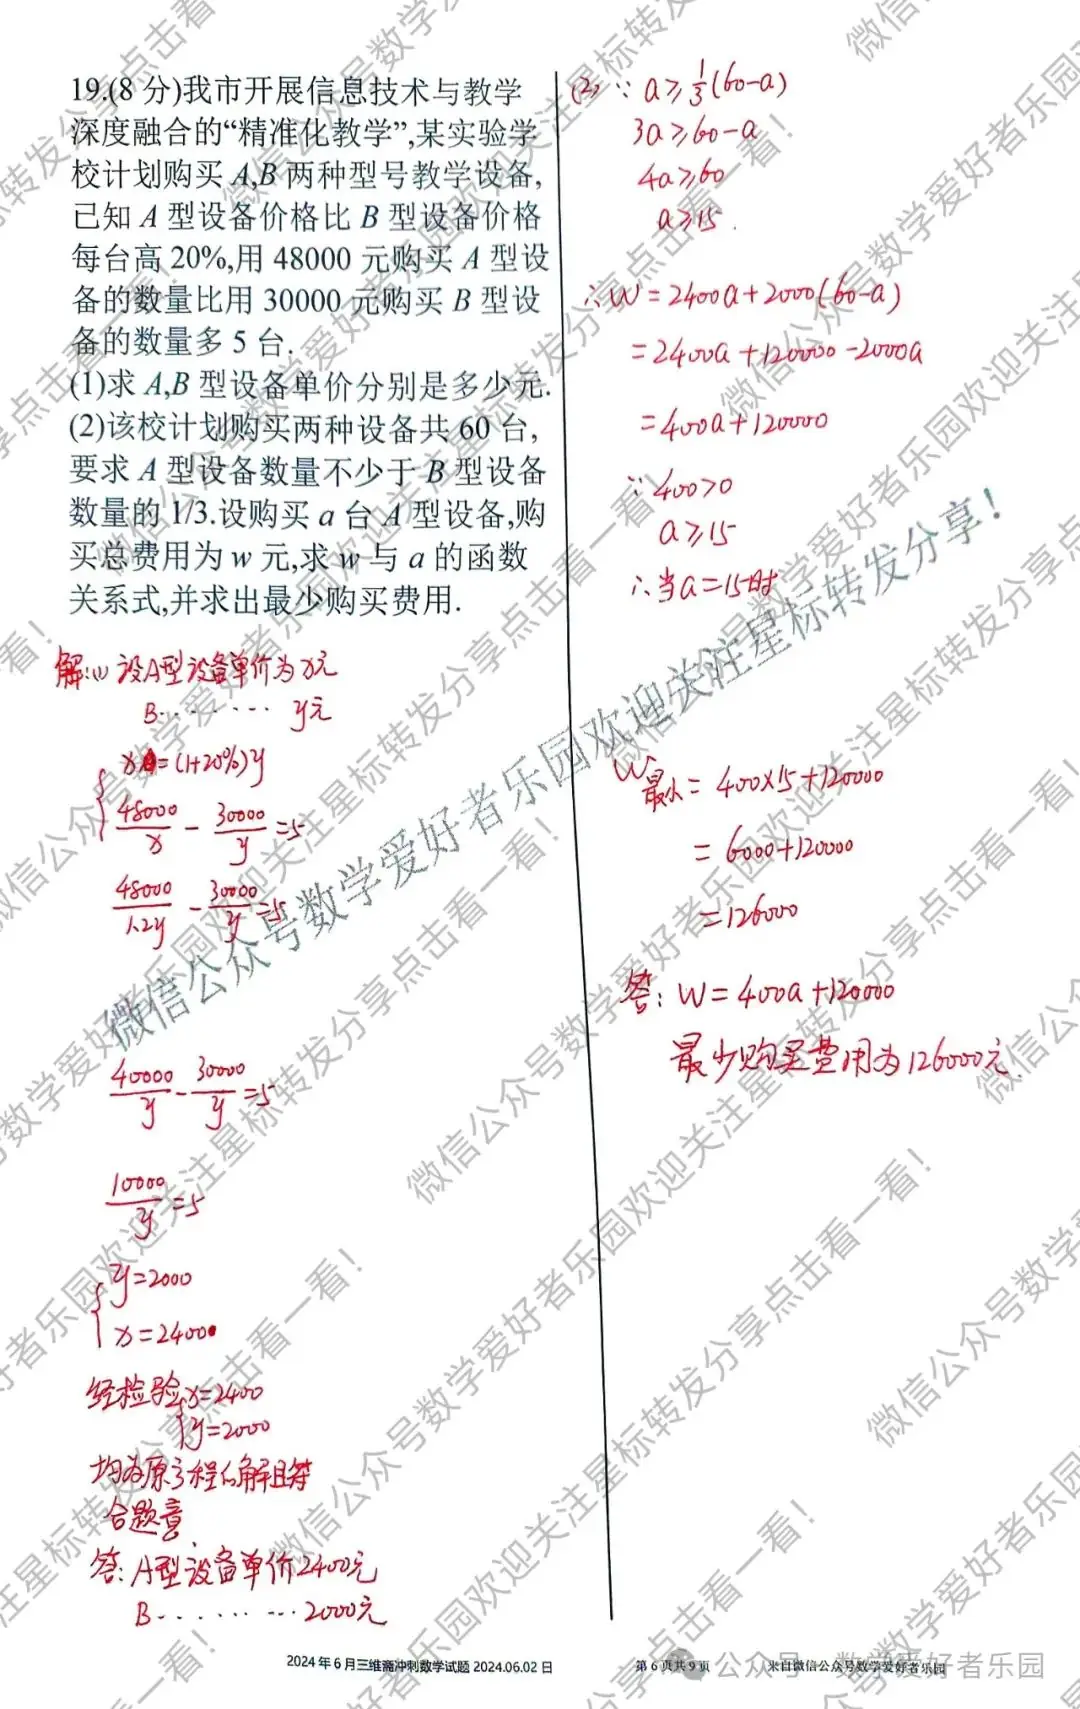 19.(8 分)我市开展信息技术与教学
深度融合的“精准化教学”,某实验学
校计划购买 A,B 两种型号教学设备,
已知 A 型设备价格比 B 型设备价格
每台高 20%,用 48000 元购买 A 型设
备的数量比用 30000 元购买 B 型设
备的数量多 5 台.
(1)求 A,B 型设备单价分别是多少元.
(2)该校计划购买两种设备共 60 台,
要求 A 型设备数量不少于 B 型设备
数量的 1/3.设购买 a 台 A 型设备,购
买总费用为 w 元,求 w 与 a 的函数
关系式,并求出最少购买费用.
解:(1)设A型设备单价为x元
B········y元
x=(1+20%)y
48000/x - 30000/y =5
48000/1.2y - 30000/y =5
40000/y - 30000/y =5
10000/y =5
y=2000
x=2400
经检验x=2400
y=2000
均为原方程的解且符
合题意
答:A型设备单价2400元
B········2000元
(2)∵a≥1/3(60-a)
3a≥60-a
4a≥60
a≥15.
∴W=2400a+2000(60-a)
=2400a+120000-2000a
=400a+120000
∵400>0
a≥15
∴当a=15时
W最小=400×15+120000
=6000+120000
=126000
答:W=400a+120000
最少购买费用为126000元.
微信公众号数学爱好者乐园欢迎关注星标转发分享!
微信公众号数学爱好者乐园欢迎关注星标转发分享点击看一看!
2024 年 6 月三维斋冲刺数学试题 2024.06.02 日
第 6 页共 9 页
来自微信公众号数学爱好者乐园
公众号·数学爱好者乐园